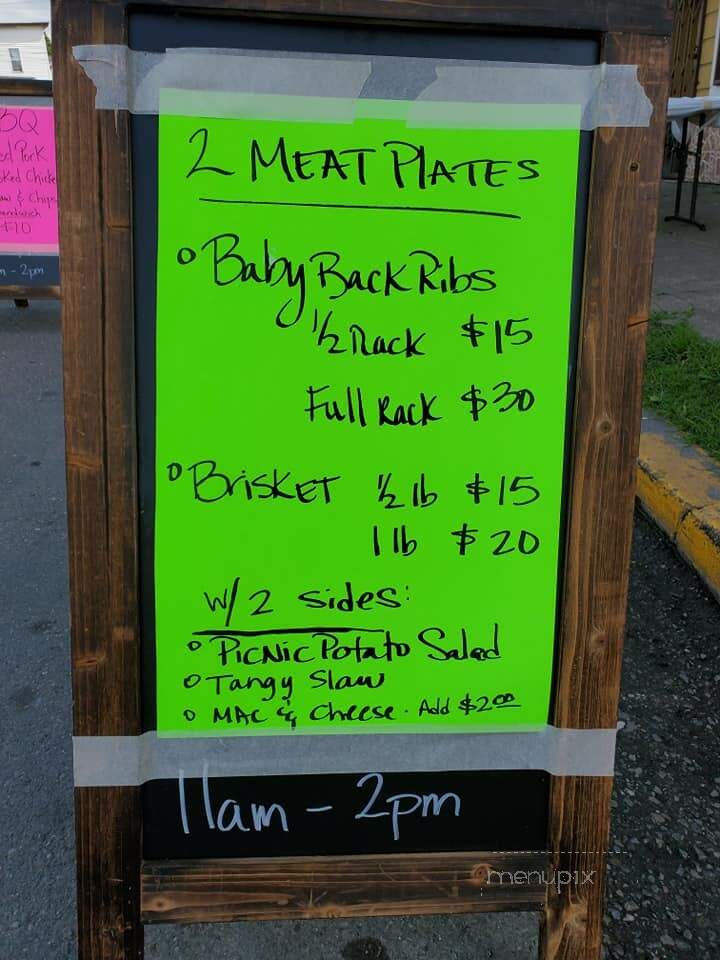 2 MEAT PLATES
Baby Back Ribs
1/2 Rack $15
Full Rack $30
BrisKET 1/2 lb $15
1 lb $20
w/ 2 sides:
PicNic Potato Salad
Tangy Slaw
MAC & Cheese. Add $2.00
11am - 2pm
BQ
Pork
Chips
$10
- 2pm
menupix